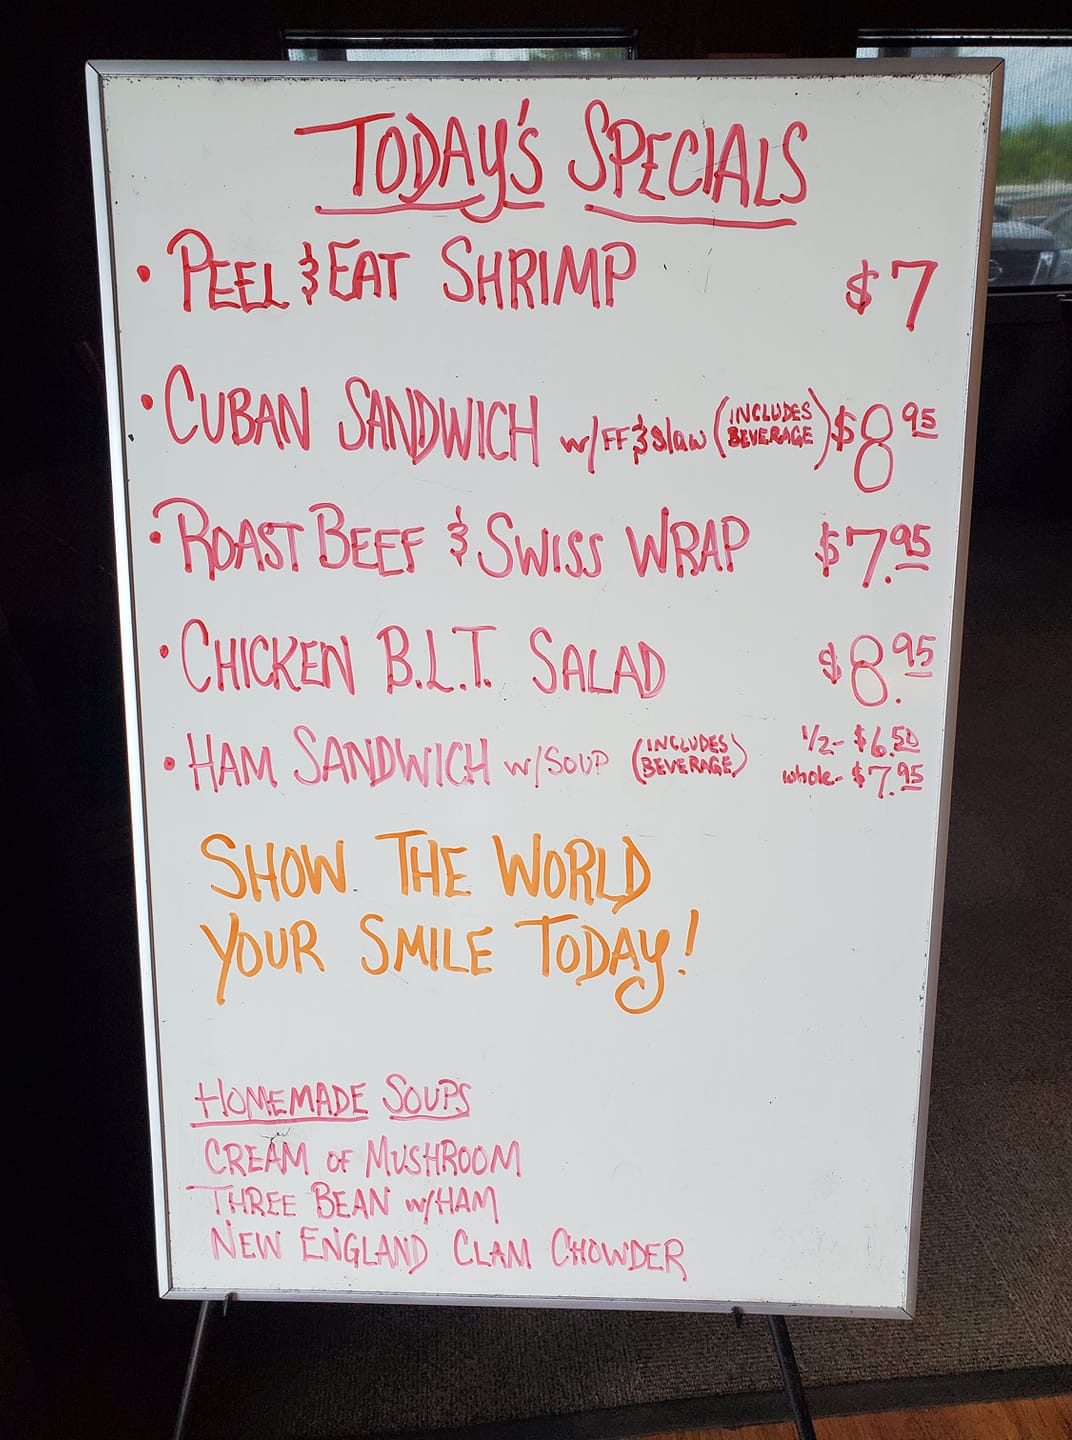 TODAY'S SPECIALS
• PEEL & EAT SHRIMP $7
• CUBAN SANDWICH w/FF & Slaw (INCLUDES BEVERAGE) $8 95
• ROAST BEEF & SWISS WRAP $7.95
• CHICKEN B.L.T. SALAD $8.95
• HAM SANDWICH w/SOUP (INCLUDES BEVERAGE) 1/2- $6.50
whole- $7.95
SHOW THE WORLD
YOUR SMILE TODAY!
HOMEMADE SOUPS
CREAM OF MUSHROOM
THREE BEAN w/HAM
NEW ENGLAND CLAM CHOWDER